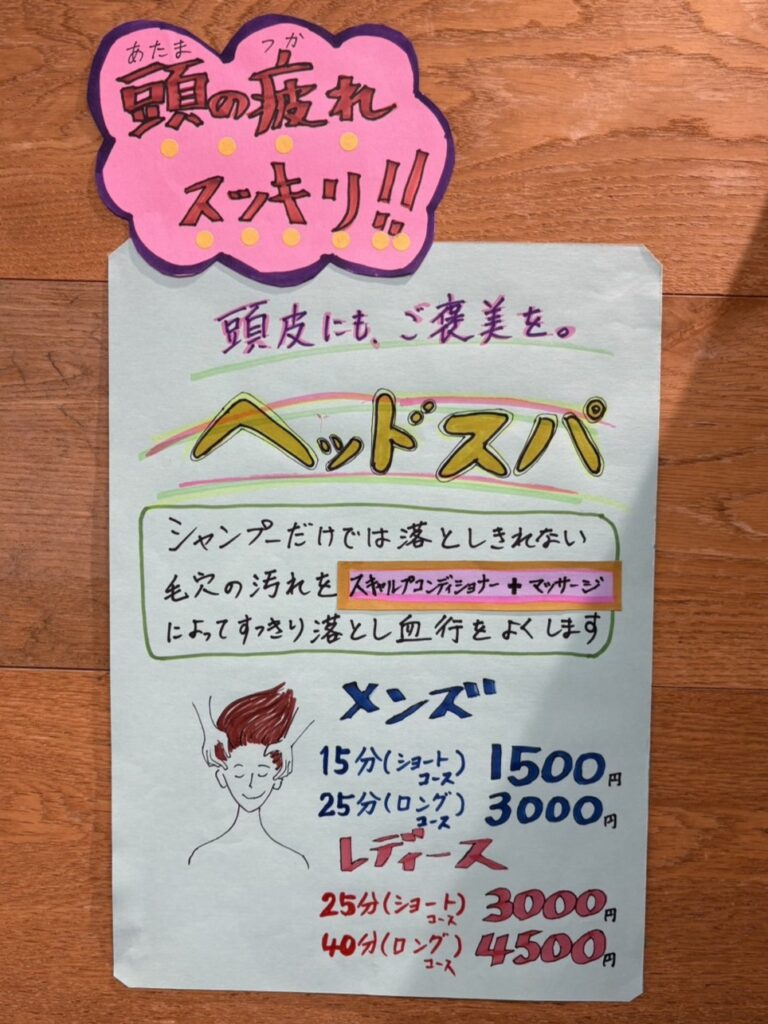 あたま つか
頭の疲れ
スッキリ!!
頭皮にも、ご褒美を。
ヘッドスパ
シャンプーだけでは落としきれない
毛穴の汚れをスキャルプコンディショナー+マッサージ
によってすっきり落とし血行をよくします
メンズ
15分(ショートコース) 1500円
25分(ロングコース) 3000円
レディース
25分(ショートコース) 3000円
40分(ロングコース) 4500円